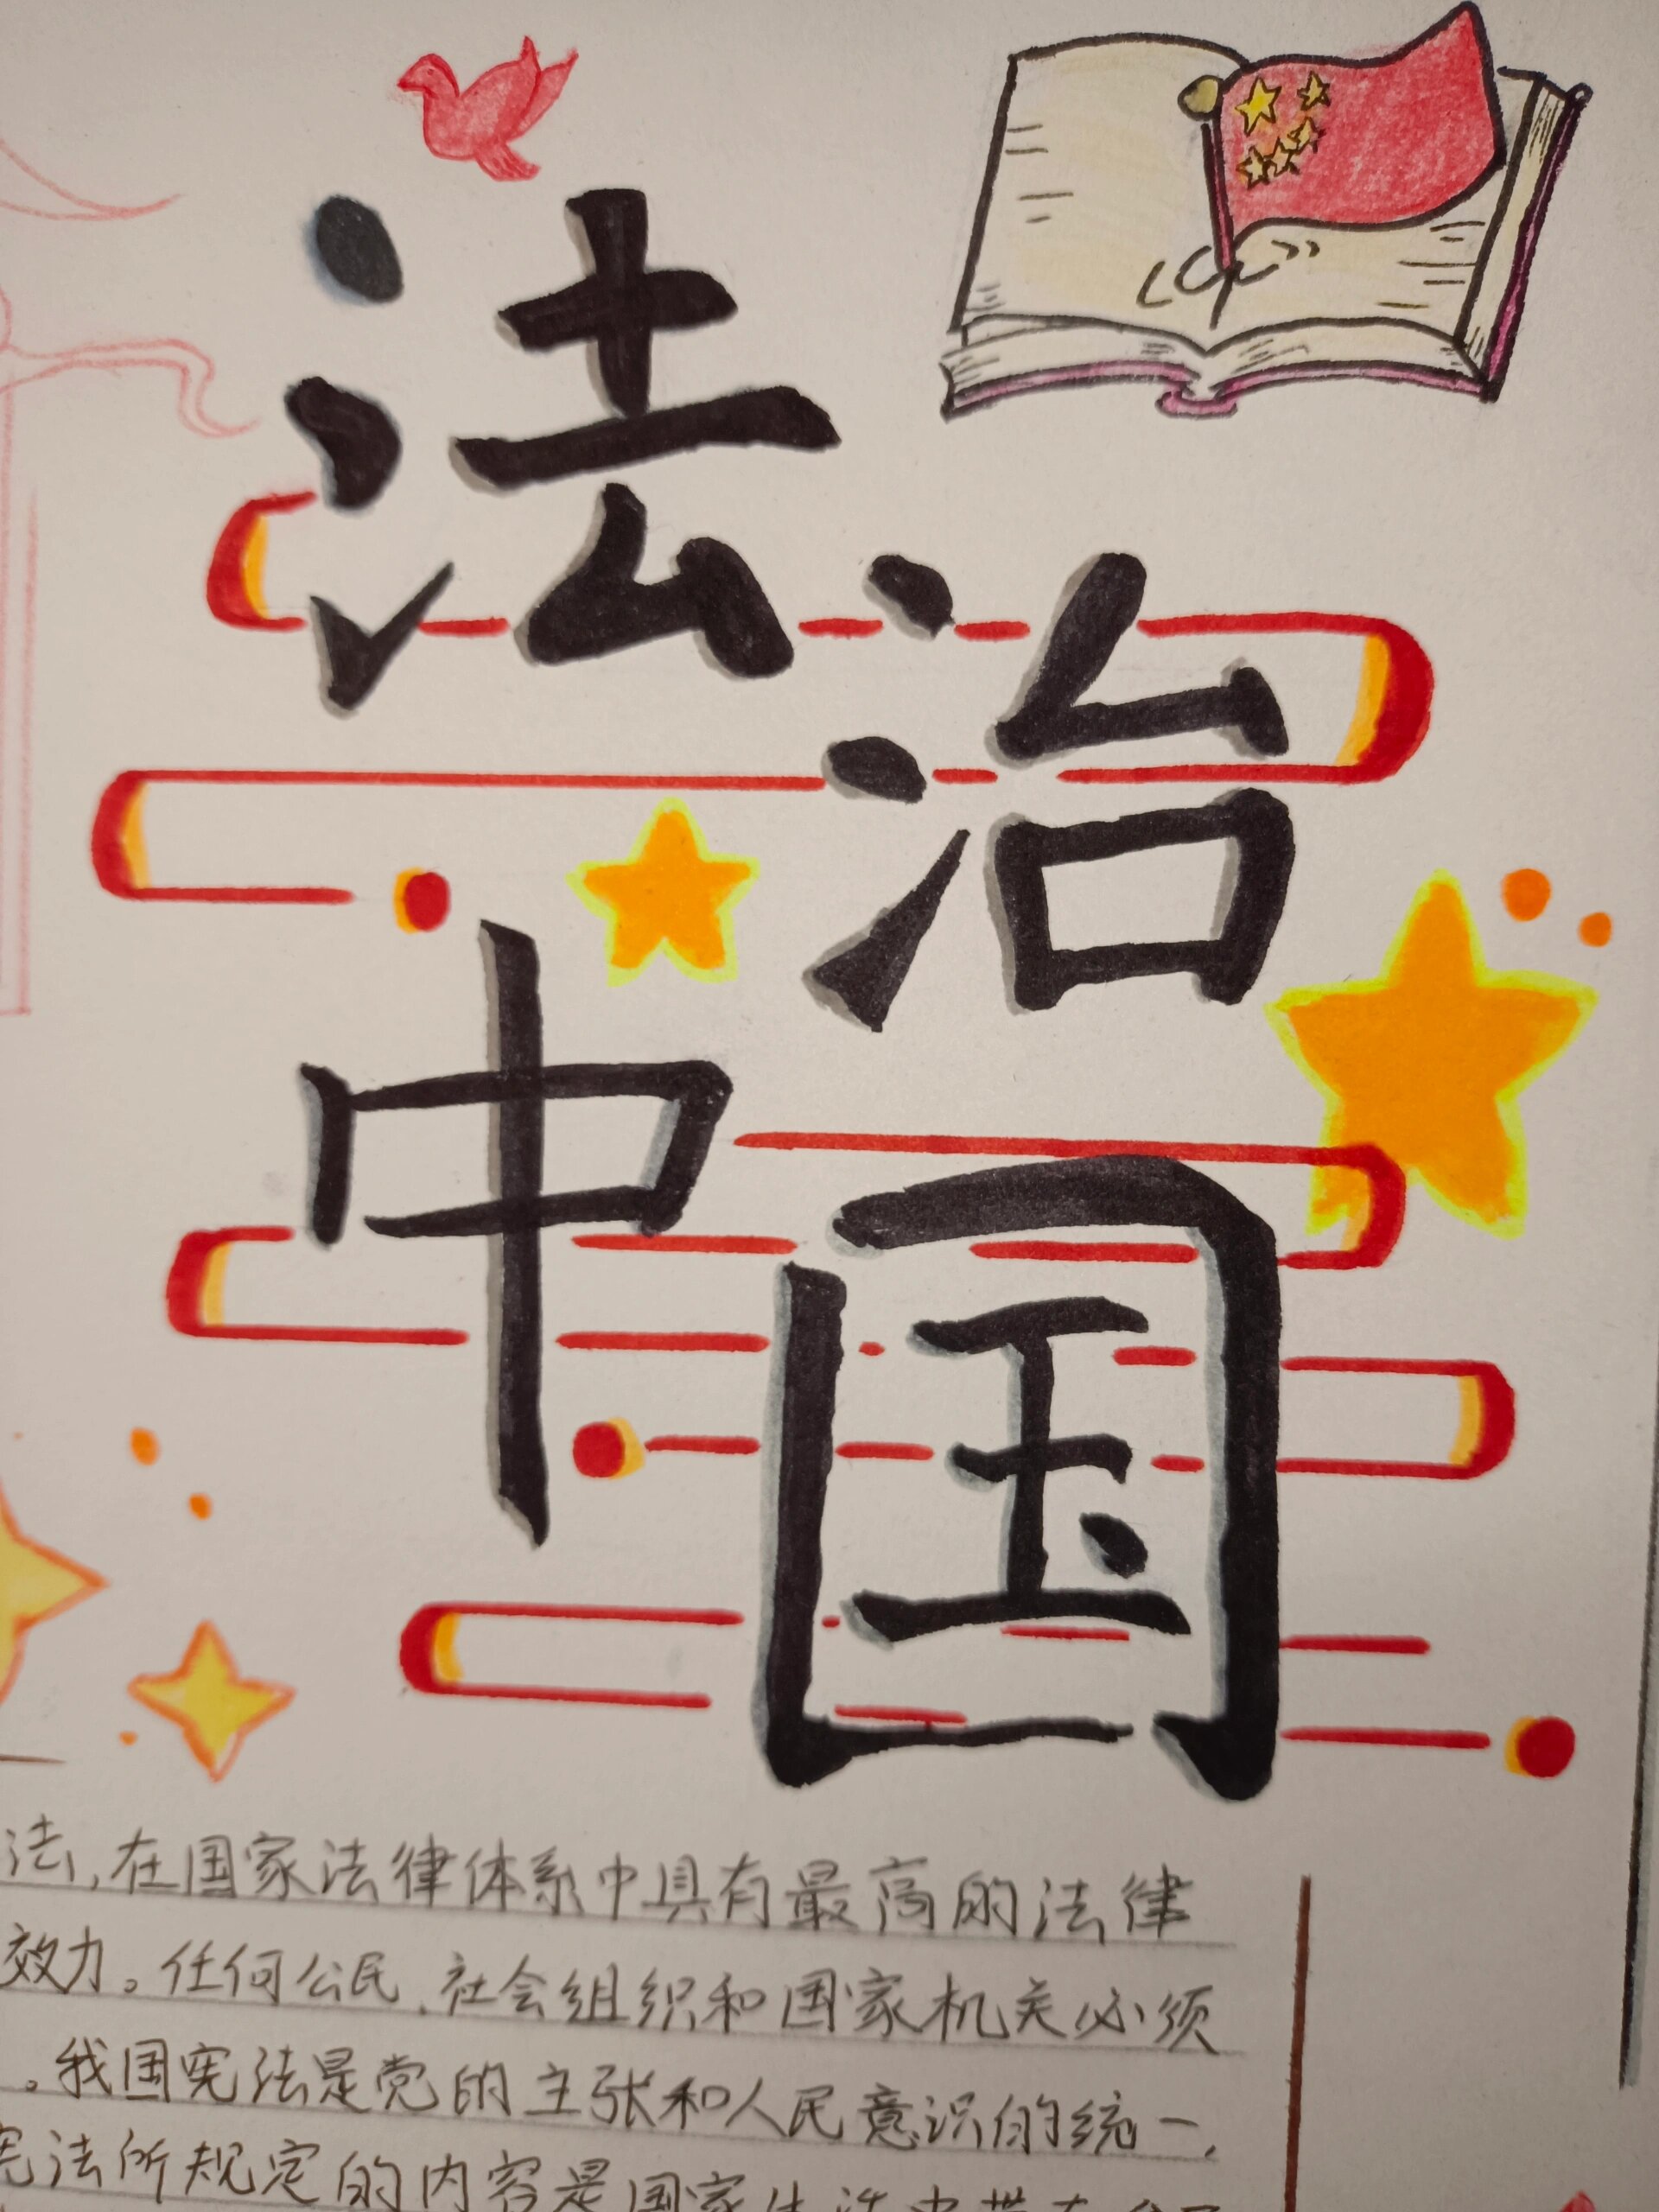 法治
中国
法,在国家法律体系中具有最高的法律
效力。任何公民、社会组织和国家机关必须
。我国宪法是党的主张和人民意识的统一,
宪法所规定的内容是国家生活中带有